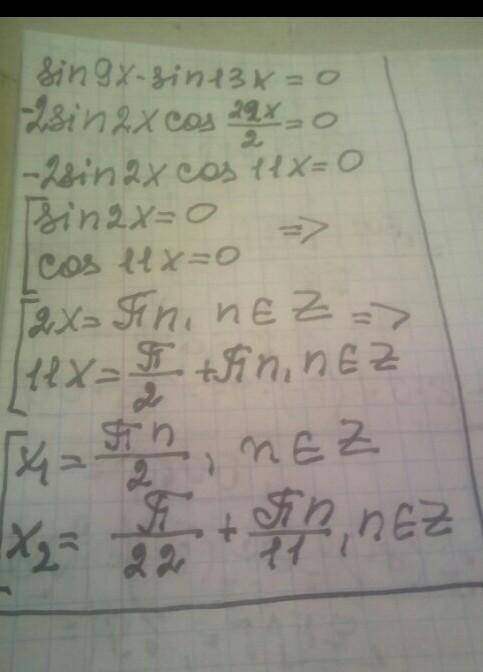 sin9x-sin13x=0
-2sin2x cos 22x/2=0
-2sin2x cos 11x=0
[sin2x=0 =>
cos 11x=0
[2x=πn, n∈Z =>
11x=π/2+πn, n∈Z
[x₁=πn/2, n∈Z
x₂=π/22+πn/11, n∈Z